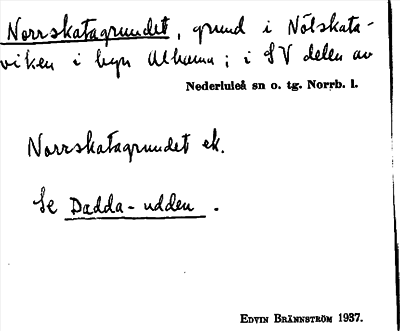 Norrskatagrundet, grund i Nölskata-
viken i byn Alhamn; i SV delen av
Nederluleå sn o. tg. Norrb. l.
Norrskatagrundet ek.
Se Dadda-udden.
EDVIN BRÄNNSTRÖM 1937.